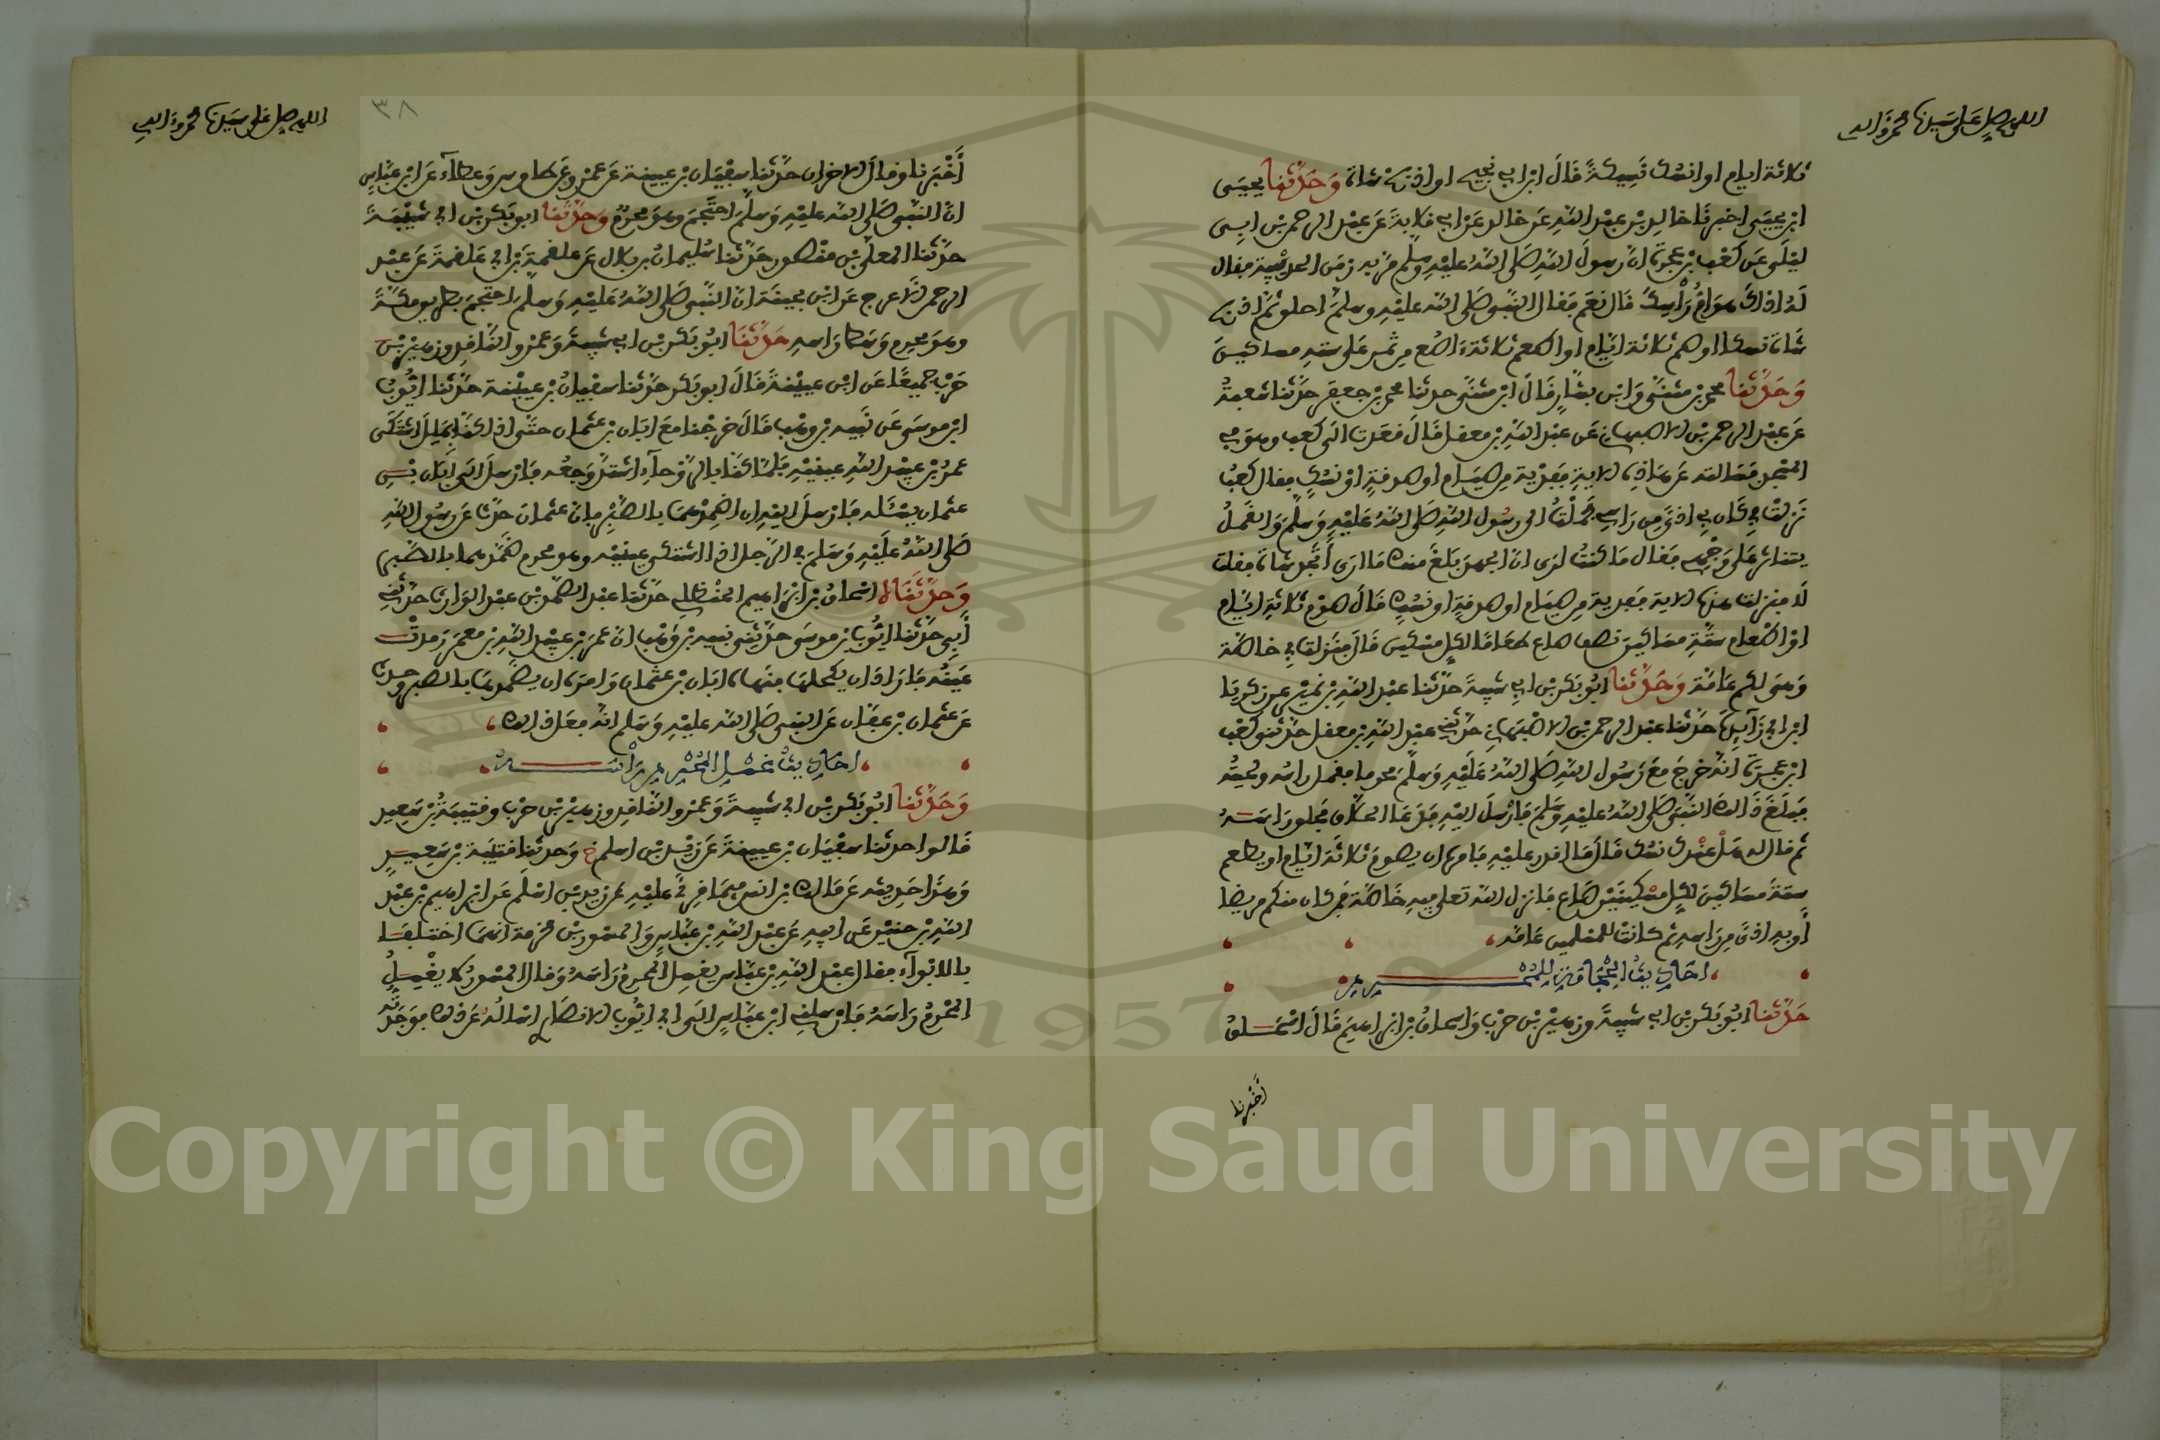 اللهم صل على سيدنا محمد وءاله
ثلاثة ايام او انسك نسيكة قال ابن ابي نجيح او اذبح شاة وحدثنا يحيى
ابن يحيى اخبرنا خالد بن عبد الله عن خالد عن ابي قلابة عن عبد الرحمن بن ابي
ليلى عن كعب بن عجرة ان رسول الله صلى الله عليه وسلم مر به زمن الحديبية فقال
له اذاك هوام راسك قال نعم فقال النبي صلى الله عليه وسلم احلق ثم اذبح
شاة نسكا او صم ثلاثة ايام او اطعم ثلاثة ءاصع من تمر على ستة مساكين
وحدثنا محمد بن مثنى وابن بشار قال ابن مثنى حدثنا محمد بن جعفر حدثنا شعبة
عن عبد الرحمن بن الاصبهاني عن عبد الله بن معقل قال قعدت الى كعب وهو في
المسجد فسالته عن هاذه الاية ففدية من صيام او صدقة او نسك فقال كعب
نزلت في كان بي اذى من راسي فحملت الى رسول الله صلى الله عليه وسلم والقمل
يتناثر على وجهي فقال ما كنت ارى ان الجهد بلغ منك ما ارى أتجد شاة فقلت
لا فنزلت هذه الاية ففدية من صيام او صدقة او نسك قال صوم ثلاثة ايام
او اطعام ستة مساكين نصف صاع طعاما لكل مسكين قال فنزلت في خاصة
وهي لكم عامة وحدثنا ابو بكر بن ابي شيبة حدثنا عبد الله بن نمير عن زكريا
ابن ابي زايدة حدثنا عبد الرحمن بن الاصبهاني حدثني عبد الله بن معقل حدثني كعب
ابن عجرة انه خرج مع رسول الله صلى الله عليه وسلم محرما فقمل راسه ولحيته
فبلغ ذالك النبي صلى الله عليه وسلم فارسل اليه فدعا الحلاق فحلق راسه
ثم قال له هل عندك نسك قال ما اقدر عليه فامره ان يصوم ثلاثة ايام او يطعم
ستة مساكين لكل مسكينين صاع فانزل الله تعلى فيه خاصة فمن كان منكم مريضا
أو به اذى من راسه ثم كانت للمسلمين عامة
احاديث الحجامة للمحرم
حدثنا ابو بكر بن ابي شيبة وزهير بن حرب واسحاق بن ابراهيم قال اسحاق
أخبرنا
اللهم صل على سيدنا محمد وءاله
٣٨
أخبرنا وقال الاخران حدثنا سفيان بن عيينة عن عمرو عن طاوس وعطاء عن ابن عباس
ان النبي صلى الله عليه وسلم احتجم وهو محرم وحدثنا ابو بكر بن ابي شيبة
حدثنا المعلى بن منصور حدثنا سليمان بن بلال عن علقمة بن ابي علقمة عن عبد
الرحمن الاعرج عن ابن بحينة ان النبي صلى الله عليه وسلم احتجم بطريق مكة
وهو محرم وسط راسه حدثنا ابو بكر بن ابي شيبة وعمرو الناقد وزهير بن
حرب جميعا عن ابن عيينة قال ابو بكر حدثنا سفيان بن عيينة حدثنا ايوب
ابن موسى عن نبيه بن وهب قال خرجنا مع ابان بن عثمان حتى اذا كنا بملل اشتكى
عمر بن عبيد الله عينيه فلما كنا بالروحاء اشتد وجعه فارسل الى ابان بن
عثمان يسئله فارسل اليه ان اضمدهما بالصبر فان عثمان حدث عن رسول الله
صلى الله عليه وسلم في الرجل اذا اشتكى عينيه وهو محرم ضمدهما بالصبر
وحدثناه اسحاق بن ابراهيم الحنظلي حدثنا عبد الصمد بن عبد الوارث حدثني
أبي حدثنا ايوب بن موسى حدثني نبيه بن وهب ان عمر بن عبيد الله بن معمر رمدت
عينه فاراد ان يكحلها فنهاه ابان بن عثمان وامره ان يضمدها بالصبر وحدث
عن عثمان بن عفان عن النبي صلى الله عليه وسلم انه فعل ذالك
احاديث غسل المحرم راسه
وحدثنا ابو بكر بن ابي شيبة وعمرو الناقد وزهير بن حرب وقتيبة بن سعيد
قالوا حدثنا سفيان بن عيينة عن زيد بن اسلم ح وحدثنا قتيبة بن سعيد
وهذا حديثه عن مالك بن انس فيما قرئ عليه عن زيد بن اسلم عن ابراهيم بن عبد
الله بن حنين عن ابيه عن عبد الله بن عباس والمسور بن مخرمة انهما اختلفا
بالابواء فقال عبد الله بن عباس يغسل المحرم راسه وقال المسور لا يغسل
المحرم راسه فارسلني ابن عباس الى ابي ايوب الانصاري اسأله عن ذالك فوجدته
Copyright © King Saud University
1957